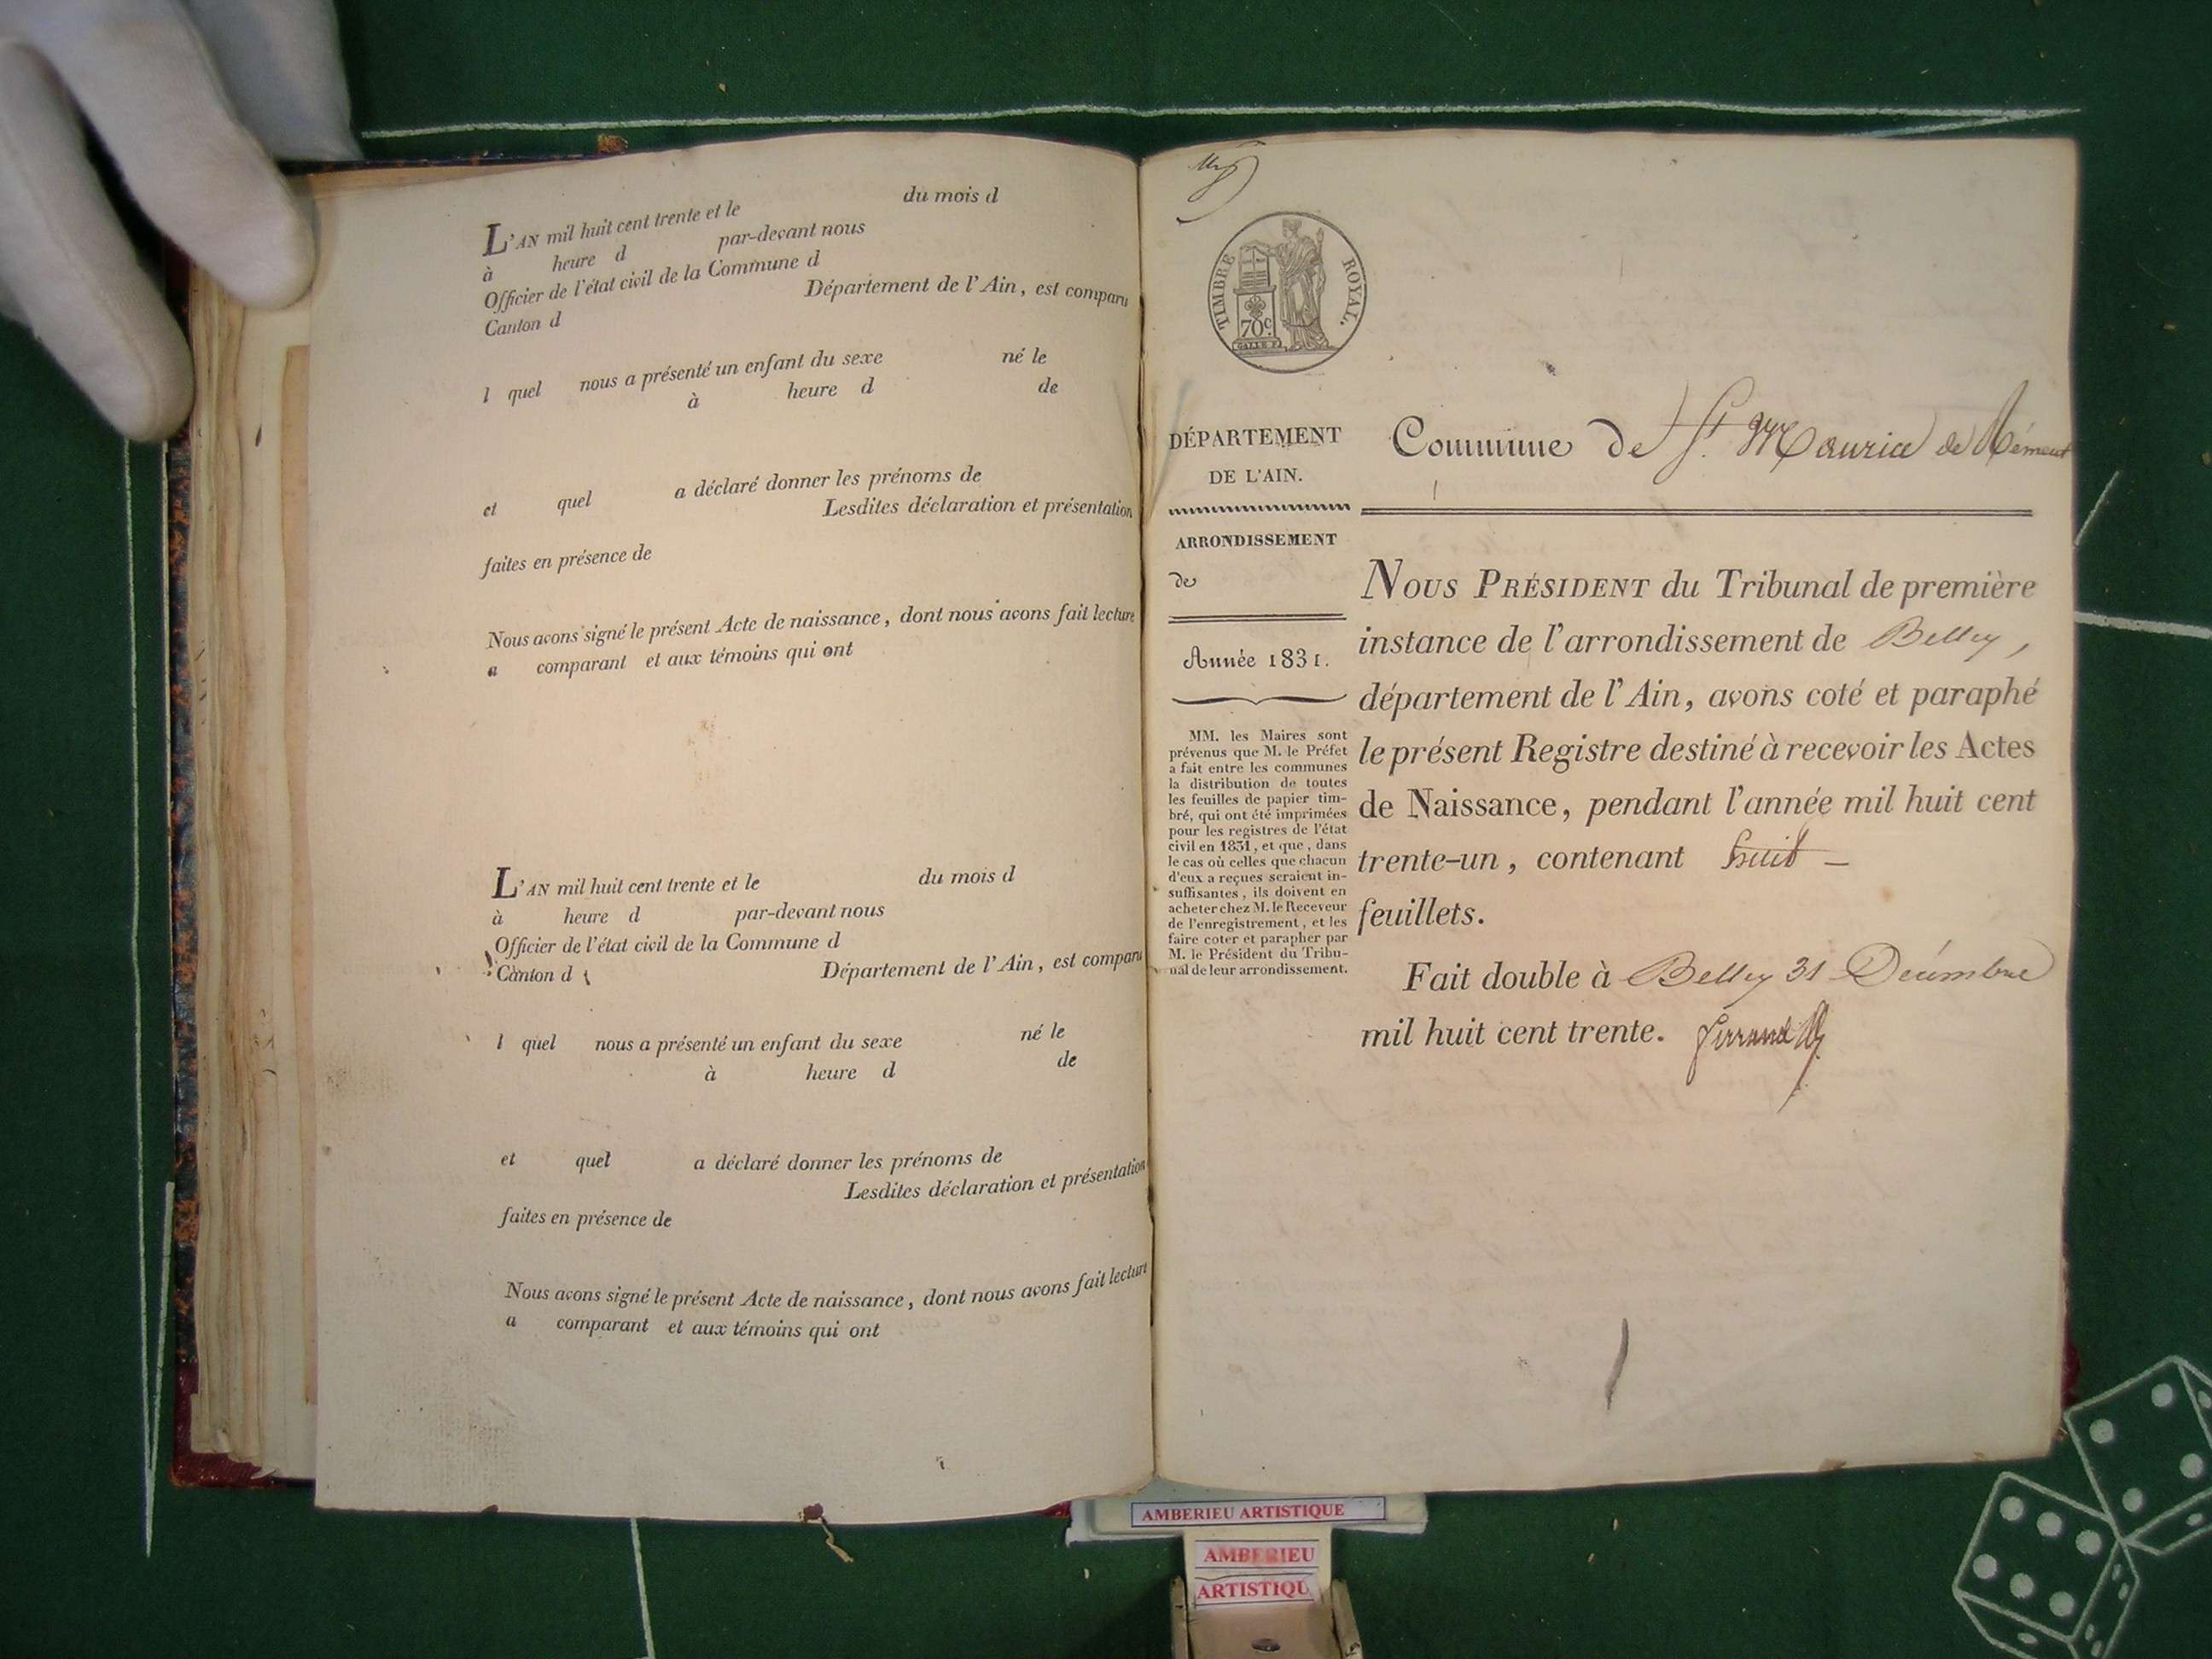 L'AN mil huit cent trente et le du mois d
à heure d par-devant nous
Officier de l'état civil de la Commune d
Canton d Département de l'Ain, est comparu
l quel nous a présenté un enfant du sexe né le
à heure d de
et quel a déclaré donner les prénoms de
Lesdites déclaration et présentation
faites en présence de
Nous avons signé le présent Acte de naissance, dont nous avons fait lecture
a comparant et aux témoins qui ont
L'AN mil huit cent trente et le du mois d
à heure d par-devant nous
Officier de l'état civil de la Commune d
Canton d Département de l'Ain, est comparu
l quel nous a présenté un enfant du sexe né le
à heure d de
et quel a déclaré donner les prénoms de
Lesdites déclaration et présentation
faites en présence de
Nous avons signé le présent Acte de naissance, dont nous avons fait lecture
a comparant et aux témoins qui ont
TIMBRE ROYAL.
70c
DÉPARTEMENT
DE L'AIN.
ARRONDISSEMENT
de
Année 1831.
MM. les Maires sont
prévenus que M. le Préfet
a fait entre les communes
la distribution de toutes
les feuilles de papier tim-
bré, qui ont été imprimées
pour les registres de l'état
civil en 1831, et que, dans
le cas où celles que chacun
d'eux a reçues seraient in-
suffisantes, ils doivent en
acheter chez M. le Receveur
de l'enregistrement, et les
faire coter et parapher par
M. le Président du Tribu-
nal de leur arrondissement.
Commune de St. Maurice de Rément
NOUS PRÉSIDENT du Tribunal de première
instance de l'arrondissement de Belley,
département de l'Ain, avons coté et paraphé
le présent Registre destiné à recevoir les Actes
de Naissance, pendant l'année mil huit cent
trente-un, contenant huit —
feuillets.
Fait double à Belley 31 Décembre
mil huit cent trente.
AMBERIEU ARTISTIQUE
AMBERIEU
ARTISTIQU